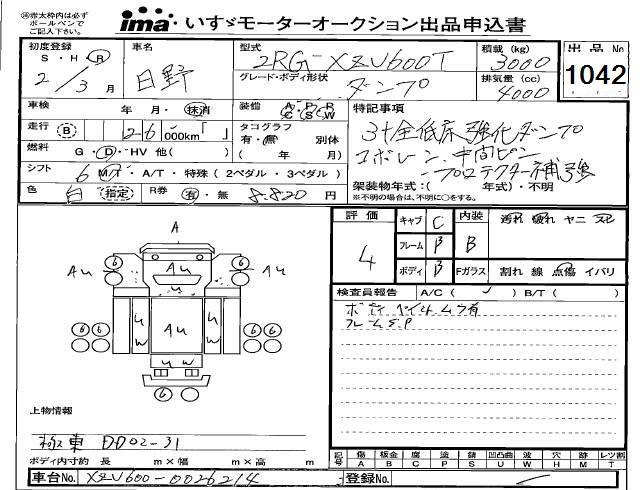 ㊟赤太枠内は必ず
ボールペンで
ご記入下さい。
ima いすゞモーターオークション出品申込書
初度登録 S・H・R 2/3月
車名 日野
型式 2RG-XZU600T
グレード・ボディ形状 ダンプ
積載 (kg) 3000
排気量 (cc) 4000
出品 No 1042
車検 年 月・抹消
装備 A/C P/S R/W
走行 B 2 6 000km「 」
タコグラフ 有・無 別体 ( 年 月)
燃料 G・D・HV 他( )
シフト 6 M/T・A/T・特殊 (2ペダル・3ペダル)
色 白 指定 R券 有・無 8.820 円
特記事項
3t全低床強化ダンプ
コボレーン、中間ピン
プロテクター補強
架装物年式:( 年式)・不明
※不明の場合は、不明に○をする。
評価 4
キャブ C 内装 汚れ 破れ ヤニ スレ
フレーム B B
ボディ B Fガラス 割れ 線 点傷 イバリ
検査員報告 A/C ( ✓ ) B/T ( )
ボディペイントムラ有
フレームS.P
A
6 6
Au Au Au
u
u w Au u w
6 6 6 6
6
上物情報
極東 DD02-31
ボディ内寸約 長 m×幅 m×高 m
記号 傷 A 板金 B 腐 C 塗 P 錆 S 凹凸曲 U 波 W 穴 H 跡 M レツ割 T
車台No. XZU600-0026214 登録No.